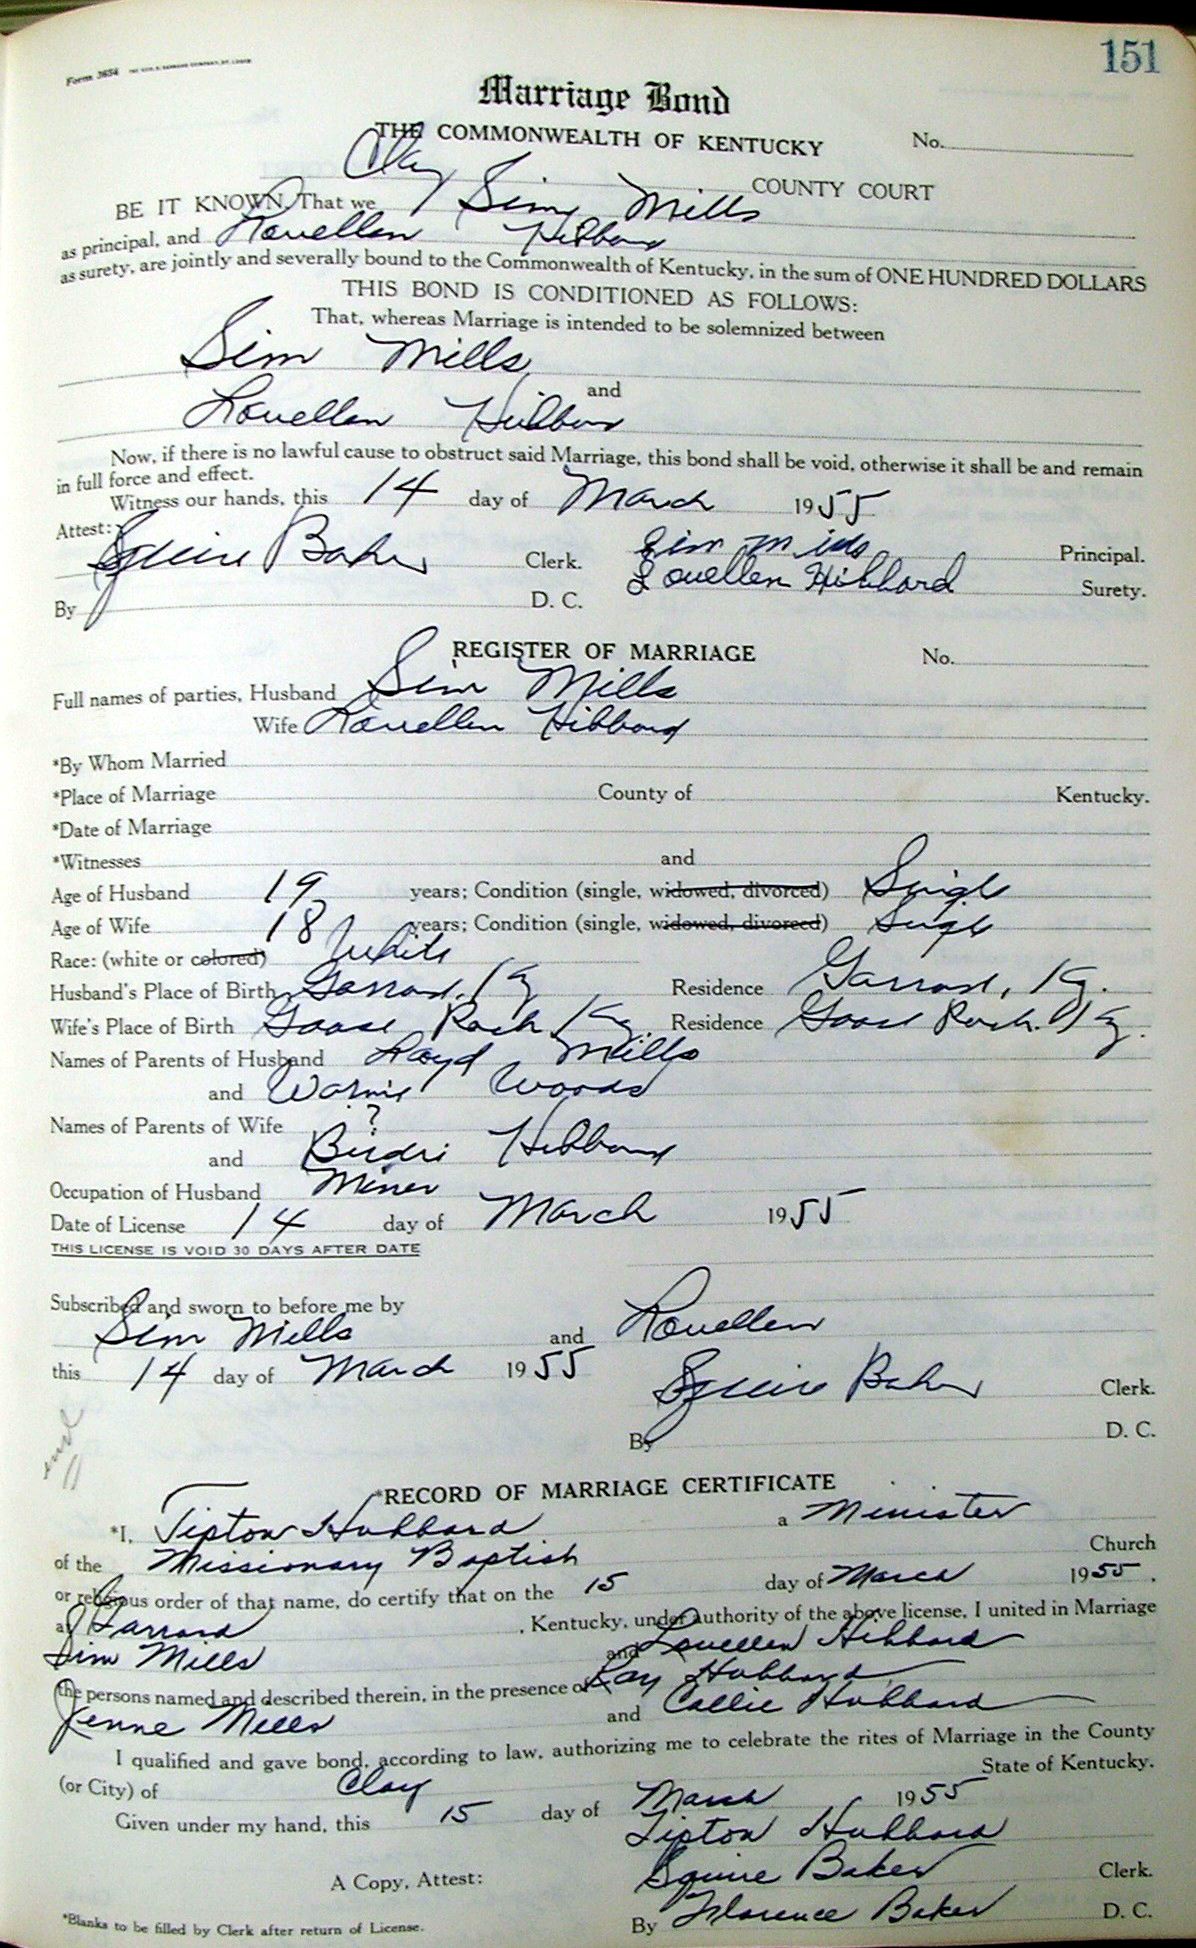 151
Form 3654
Marriage Bond
THE COMMONWEALTH OF KENTUCKY No.
Clay COUNTY COURT
BE IT KNOWN, That we Sim Mills
as principal, and Louellen Hibbard
as surety, are jointly and severally bound to the Commonwealth of Kentucky, in the sum of ONE HUNDRED DOLLARS
THIS BOND IS CONDITIONED AS FOLLOWS:
That, whereas Marriage is intended to be solemnized between
Sim Mills
and
Louellen Hibbard
Now, if there is no lawful cause to obstruct said Marriage, this bond shall be void, otherwise it shall be and remain
in full force and effect.
Witness our hands, this 14 day of March 1955
Attest:
Squire Baker Clerk. Sim Mills Principal.
Louellen Hibbard Surety.
By D. C.
REGISTER OF MARRIAGE No.
Full names of parties, Husband Sim Mills
Wife Louellen Hibbard
*By Whom Married
*Place of Marriage County of Kentucky.
*Date of Marriage
*Witnesses and
Age of Husband 19 years; Condition (single, widowed, divorced) Single
Age of Wife 18 years; Condition (single, widowed, divorced) Single
Race: (white or colored) White
Husband's Place of Birth Garrard, Ky Residence Garrard, Ky.
Wife's Place of Birth Goose Rock, Ky. Residence Goose Rock, Ky.
Names of Parents of Husband Loyd Mills
and Woods
Names of Parents of Wife ?
and Birdie Hibbard
Occupation of Husband Miner
Date of License 14 day of March 1955
THIS LICENSE IS VOID 30 DAYS AFTER DATE
Subscribed and sworn to before me by
Sim Mills and Louellen
this 14 day of March 1955
Squire Baker Clerk.
By D. C.
*RECORD OF MARRIAGE CERTIFICATE
*I, Tipton Hubbard a Minister
of the Missionary Baptist Church
or religious order of that name, do certify that on the 15 day of March 1955,
at Garrard, Kentucky, under authority of the above license, I united in Marriage
Sim Mills and Louellen Hibbard
the persons named and described therein, in the presence of Ray Hubbard
Jenne Mills and Callie Hubbard
I qualified and gave bond, according to law, authorizing me to celebrate the rites of Marriage in the County
(or City) of Clay State of Kentucky.
Given under my hand, this 15 day of March 1955
Tipton Hubbard
A Copy, Attest: Squire Baker Clerk.
*Blanks to be filled by Clerk after return of License. By Florence Baker D. C.